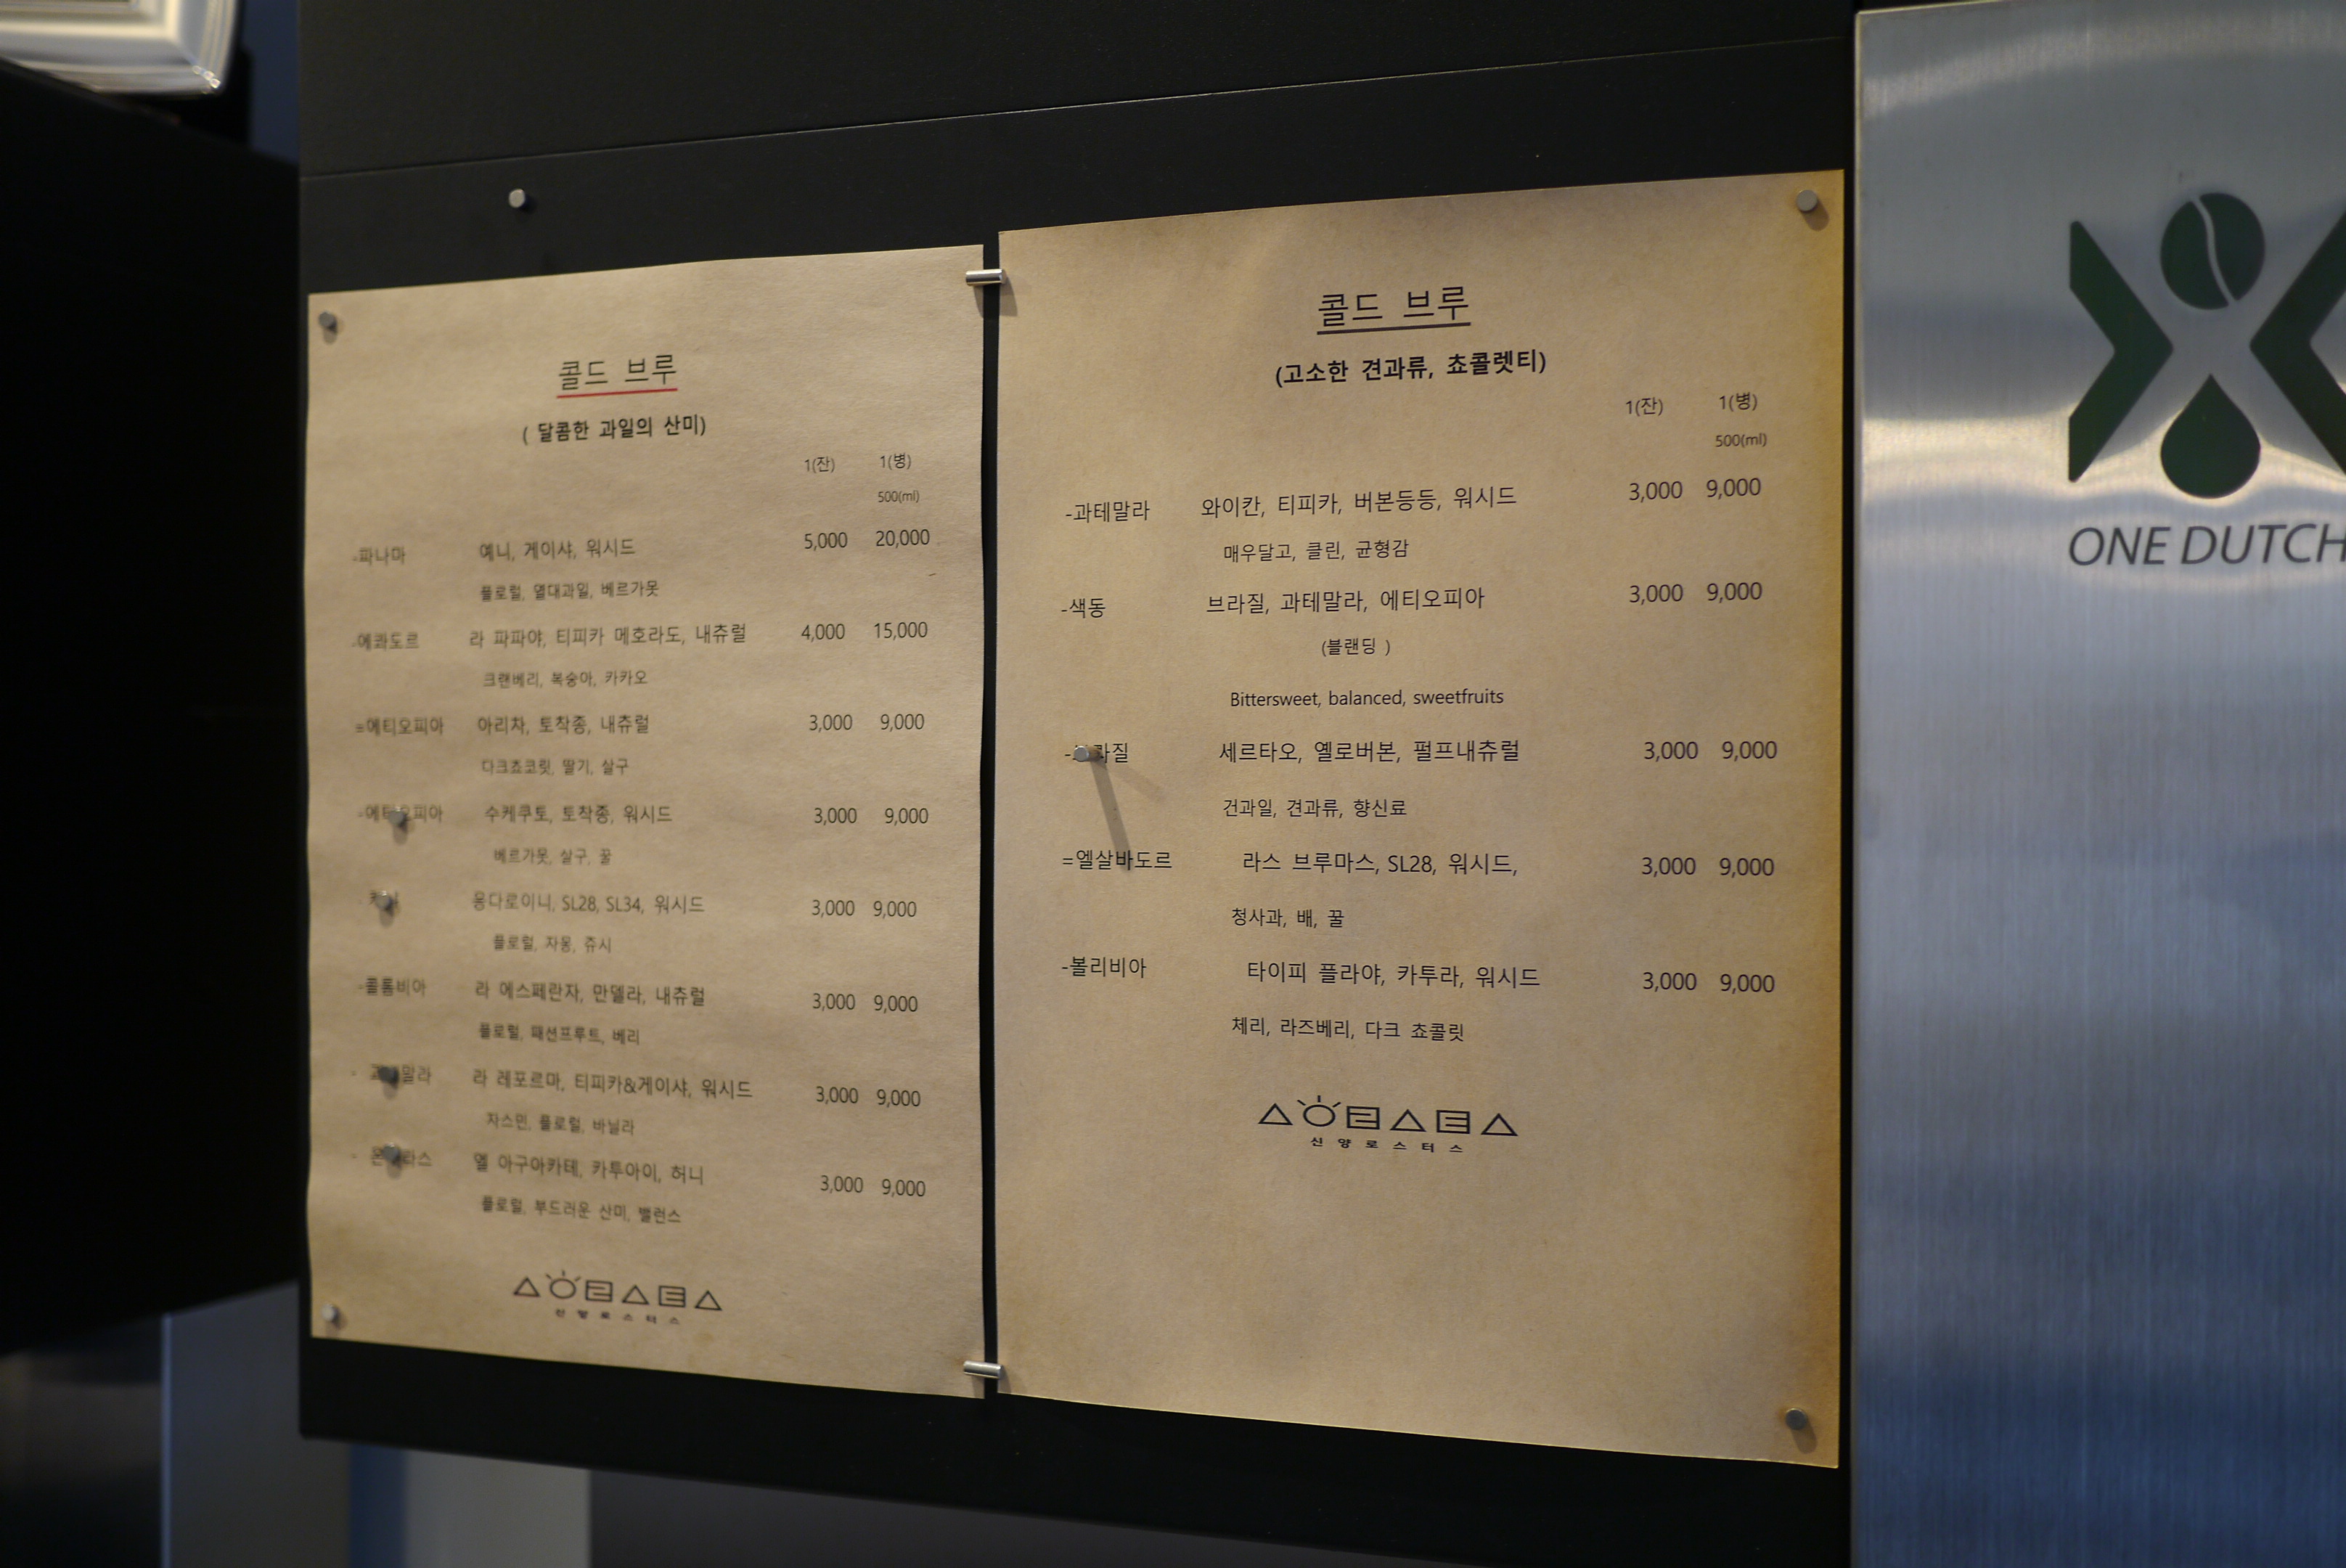 콜드 브루
( 달콤한 과일의 산미)
1(잔) 1(병)
500(ml)
-파나마 예니, 게이샤, 워시드 5,000 20,000
플로럴, 열대과일, 베르가못
-에콰도르 라 파파야, 티피카 메호라도, 내츄럴 4,000 15,000
크랜베리, 복숭아, 카카오
=에티오피아 아리차, 토착종, 내츄럴 3,000 9,000
다크쵸코릿, 딸기, 살구
수케쿠토, 토착종, 워시드 3,000 9,000
베르가못, 살구, 꿀
응다로이니, SL28, SL34, 워시드 3,000 9,000
플로럴, 자몽, 쥬시
-콜롬비아 라 에스페란자, 만델라, 내츄럴 3,000 9,000
플로럴, 패션프루트, 베리
라 레포르마, 티피카&게이샤, 워시드 3,000 9,000
자스민, 플로럴, 바닐라
엘 아구아카테, 카투아이, 허니 3,000 9,000
플로럴, 부드러운 산미, 밸런스
신양로스터스
콜드 브루
(고소한 견과류, 쵸콜렛티)
1(잔) 1(병)
500(ml)
-과테말라 와이칸, 티피카, 버본등등, 워시드 3,000 9,000
매우달고, 클린, 균형감
-색동 브라질, 과테말라, 에티오피아 3,000 9,000
(블랜딩 )
Bittersweet, balanced, sweetfruits
세르타오, 옐로버본, 펄프내츄럴 3,000 9,000
건과일, 견과류, 향신료
=엘살바도르 라스 브루마스, SL28, 워시드, 3,000 9,000
청사과, 배, 꿀
-볼리비아 타이피 플라야, 카투라, 워시드 3,000 9,000
체리, 라즈베리, 다크 쵸콜릿
신양로스터스
ONE DUTCH